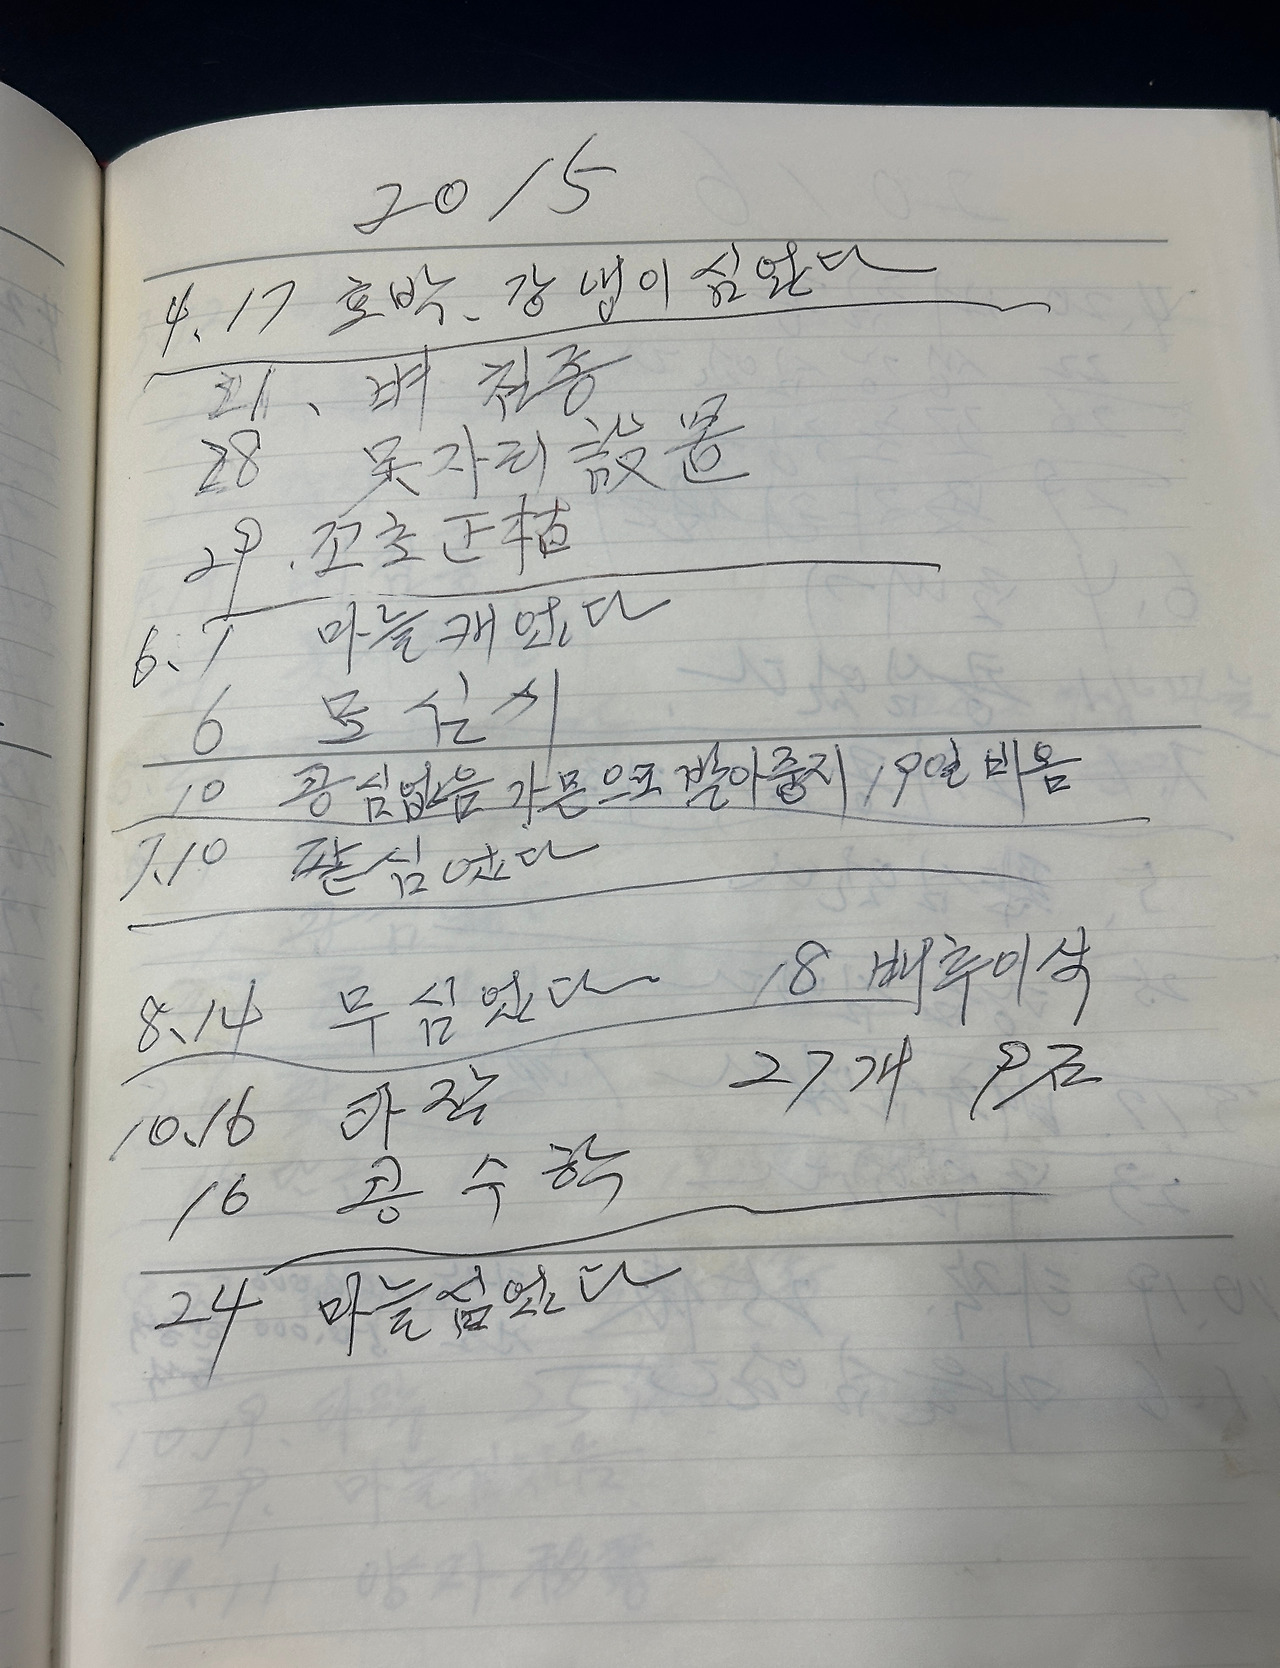 2015
4.17 호박、강냉이 심었다
21、벼 침종
28 못자리 設置
29.꼬초 正植
6、1 마늘캐었다
6 모심기
10 콩심었음 가믐으로 발아중지 19일 비옴
7.10 팥심었다
8、14 무심었다 18 배추이식
27개 9준
10.16 타작
16 콩 수학
24 마늘심었다